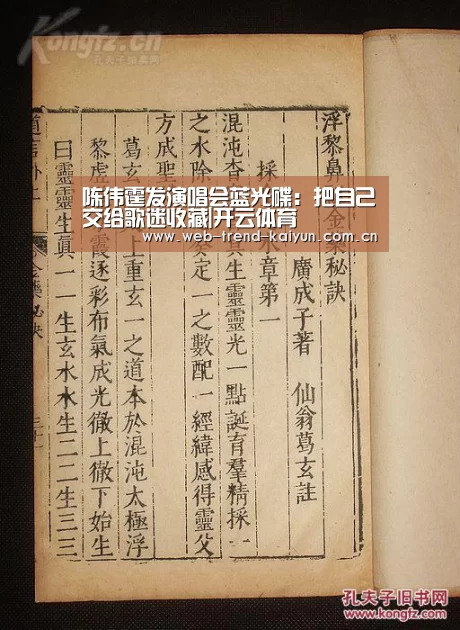 Kongfz.cn
孔夫子旧书网
陈伟霆发演唱会蓝光碟：把自己
交给歌迷收藏|开云体育
www.web-trend-kaiyun.com
浮黎鼻 金藥秘訣
廣成子著 仙翁葛玄註
採 水章第一
混沌杳 真生靈靈光一點誕育羣精採一
之水除 癸定一之數配一經緯感得靈父
方成聖
葛玄 上重玄一之道本於混沌太極浮
黎虛 霞逐彩布氣成光徹上徹下始生
曰靈靈生真一一生玄水水生二二生三三
道言外
金藥秘訣
孔夫子旧书网
www.kongfz.com